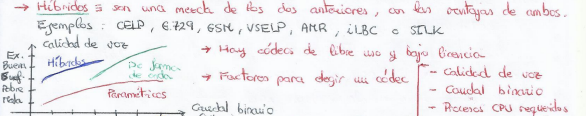 → Híbridos ≡ son una mezcla de los dos anteriores, con las ventajas de ambos.
Ejemplos: CELP, G.729, GSM, VSELP, AMR, iLBC o SILK
calidad de voz
Ex.
Buena
Suf.
Pobre
mala
Híbridos
De forma
de onda
Paramétricos
Caudal binario
→ Hay códecs de libre uso y bajo licencia
→ Factores para elegir un códec
- Calidad de voz
- Caudal binario
- Procesos CPU requeridos